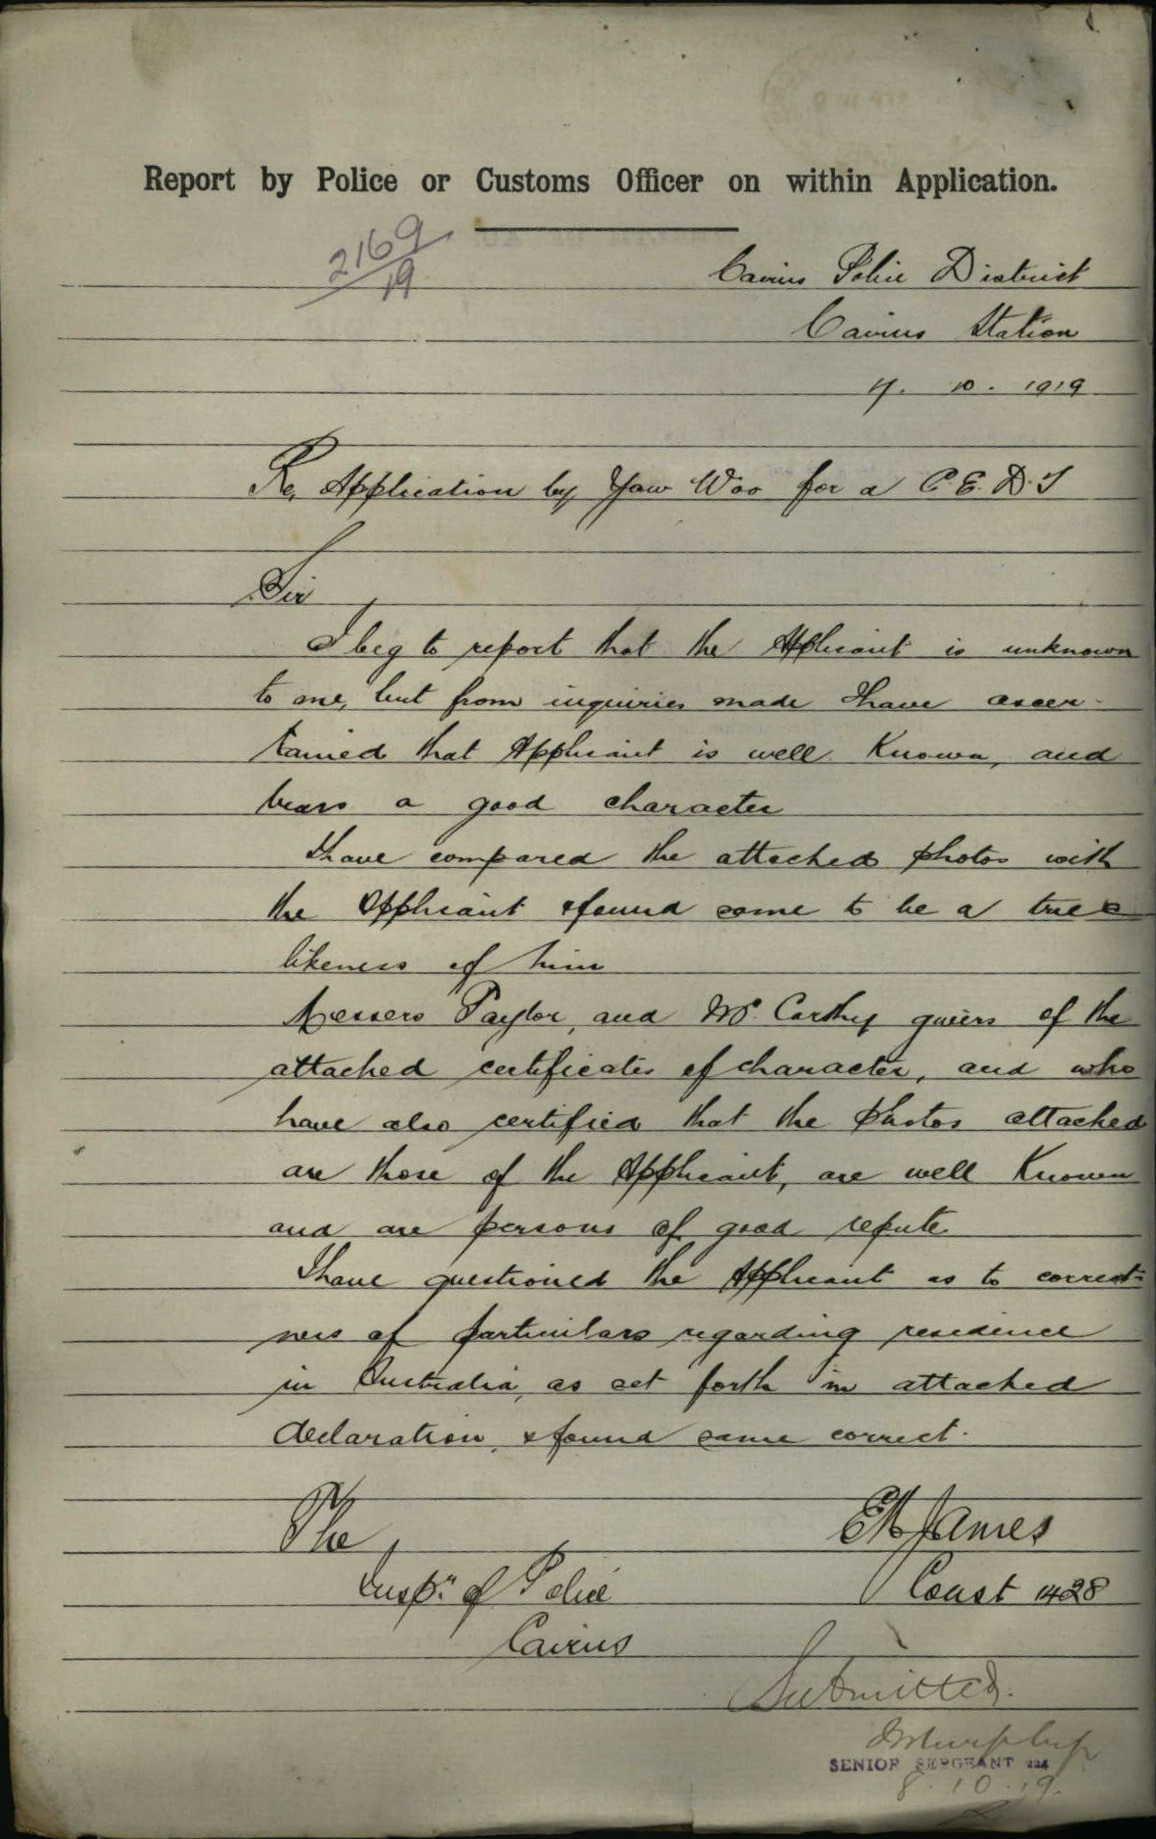 Report by Police or Customs Officer on within Application.
2169
19
Cairns Police District
Cairns Station
7. 10. 1919
Re, Application by Yaw Woo for a C.E.D.T
Sir,
I beg to report that the Applicant is unknown
to me, but from inquiries made I have ascer-
tained that Applicant is well Known, and
bears a good character
I have compared the attached photos with
the Applicant & found same to be a true
likeness of him
Messers Taylor, and McCarthy givers of the
attached certificates of character, and who
have also certified that the photos attached
are those of the Applicant, are well Known
and are persons of good repute.
I have questioned the Applicant as to correct-
ness of particulars regarding residence
in Australia, as set forth in attached
declaration, & found same correct.
The,
James
Inspr. of Police
Const 1428
Cairns
Submitted.
SENIOR SERGEANT
8.10.19.